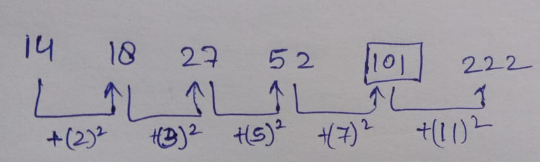 14 18 27 52 101 222
+(2)² +(3)² +(5)² +(7)² +(11)²